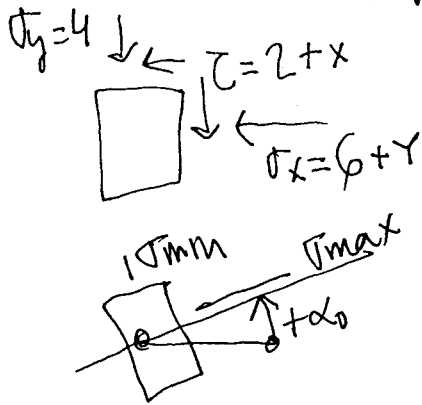 σy=4
τ=2+x
σx=6+Y
σmin
σmax
+α₀